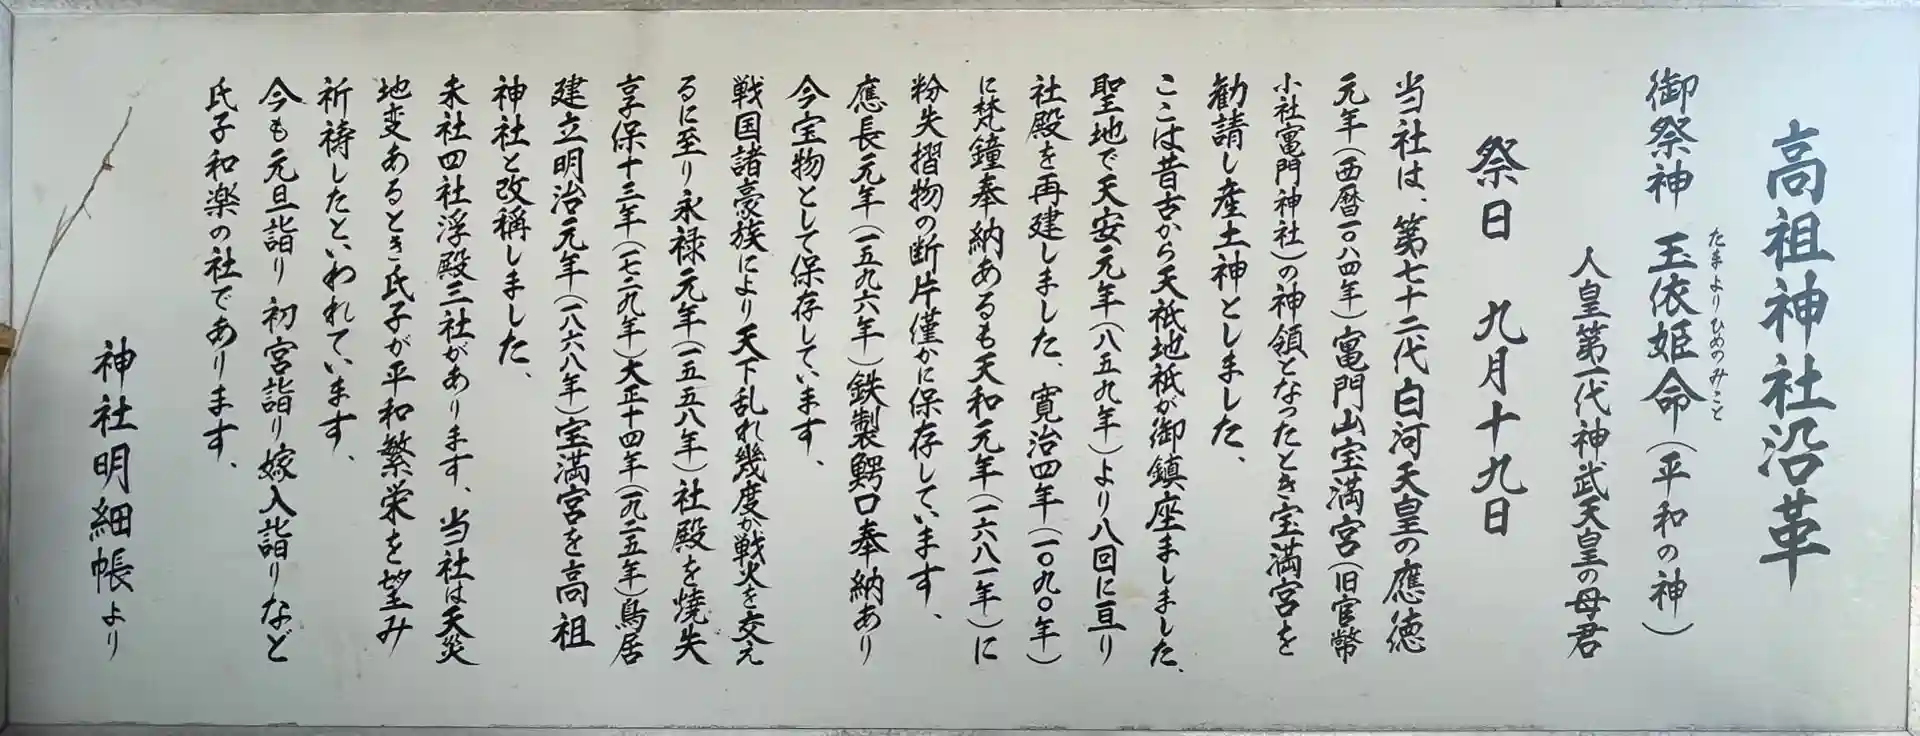 高祖神社沿革
御祭神 玉依姫命(平和の神)
たまよりひめのみこと
人皇第一代神武天皇の母君
祭日 九月十九日
当社は、第七十二代白河天皇の應徳
元年(西暦一〇八四年)竃門山宝満宮(旧官幣
小社竃門神社)の神領となったとき宝満宮を
勧請し産土神としました、
ここは昔古から天祇地祇が御鎮座ましました、
聖地で天安元年(八五九年)より八回に亘り
社殿を再建しました、寛治四年(一〇九〇年)
に梵鐘奉納あるも天和元年(一六八一年)に
粉失摺物の断片僅かに保存しています、
應長元年(一五九六年)鉄製鰐口奉納あり
今宝物として保存しています、
戦国諸豪族により天下乱れ幾度か戦火を交え
るに至り永禄元年(一五五八年)社殿を焼失
享保十三年(一七二九年)大正十四年(一九二五年)鳥居
建立明治元年(一八六八年)宝満宮を高祖
神社と改稱しました、
末社四社浮殿三社があります、当社は天災
地変あるとき氏子が平和繁栄を望み
祈祷したといわれています、
今も元旦詣り初宮詣り嫁入詣りなど
氏子和楽の社であります、
神社明細帳より